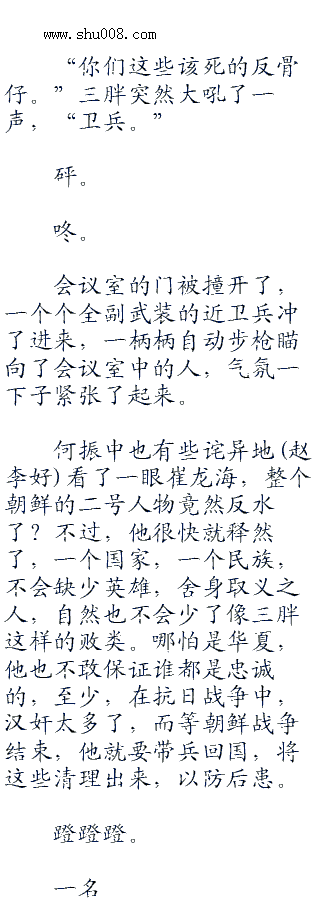 www.shu008.com
“你们这些该死的反骨
仔。”三胖突然大吼了一
声，“卫兵。”
砰。
咚。
会议室的门被撞开了，
一个个全副武装的近卫兵冲
了进来，一柄柄自动步枪瞄
向了会议室中的人，气氛一
下子紧张了起来。
何振中也有些诧异地(赵
李好)看了一眼崔龙海，整个
朝鲜的二号人物竟然反水
了？不过，他很快就释然
了，一个国家，一个民族，
不会缺少英雄，舍身取义之
人，自然也不会少了像三胖
这样的败类。哪怕是华夏，
他也不敢保证谁都是忠诚
的，至少，在抗日战争中，
汉奸太多了，而等朝鲜战争
结束，他就要带兵回国，将
这些清理出来，以防后患。
蹬蹬蹬。
一名